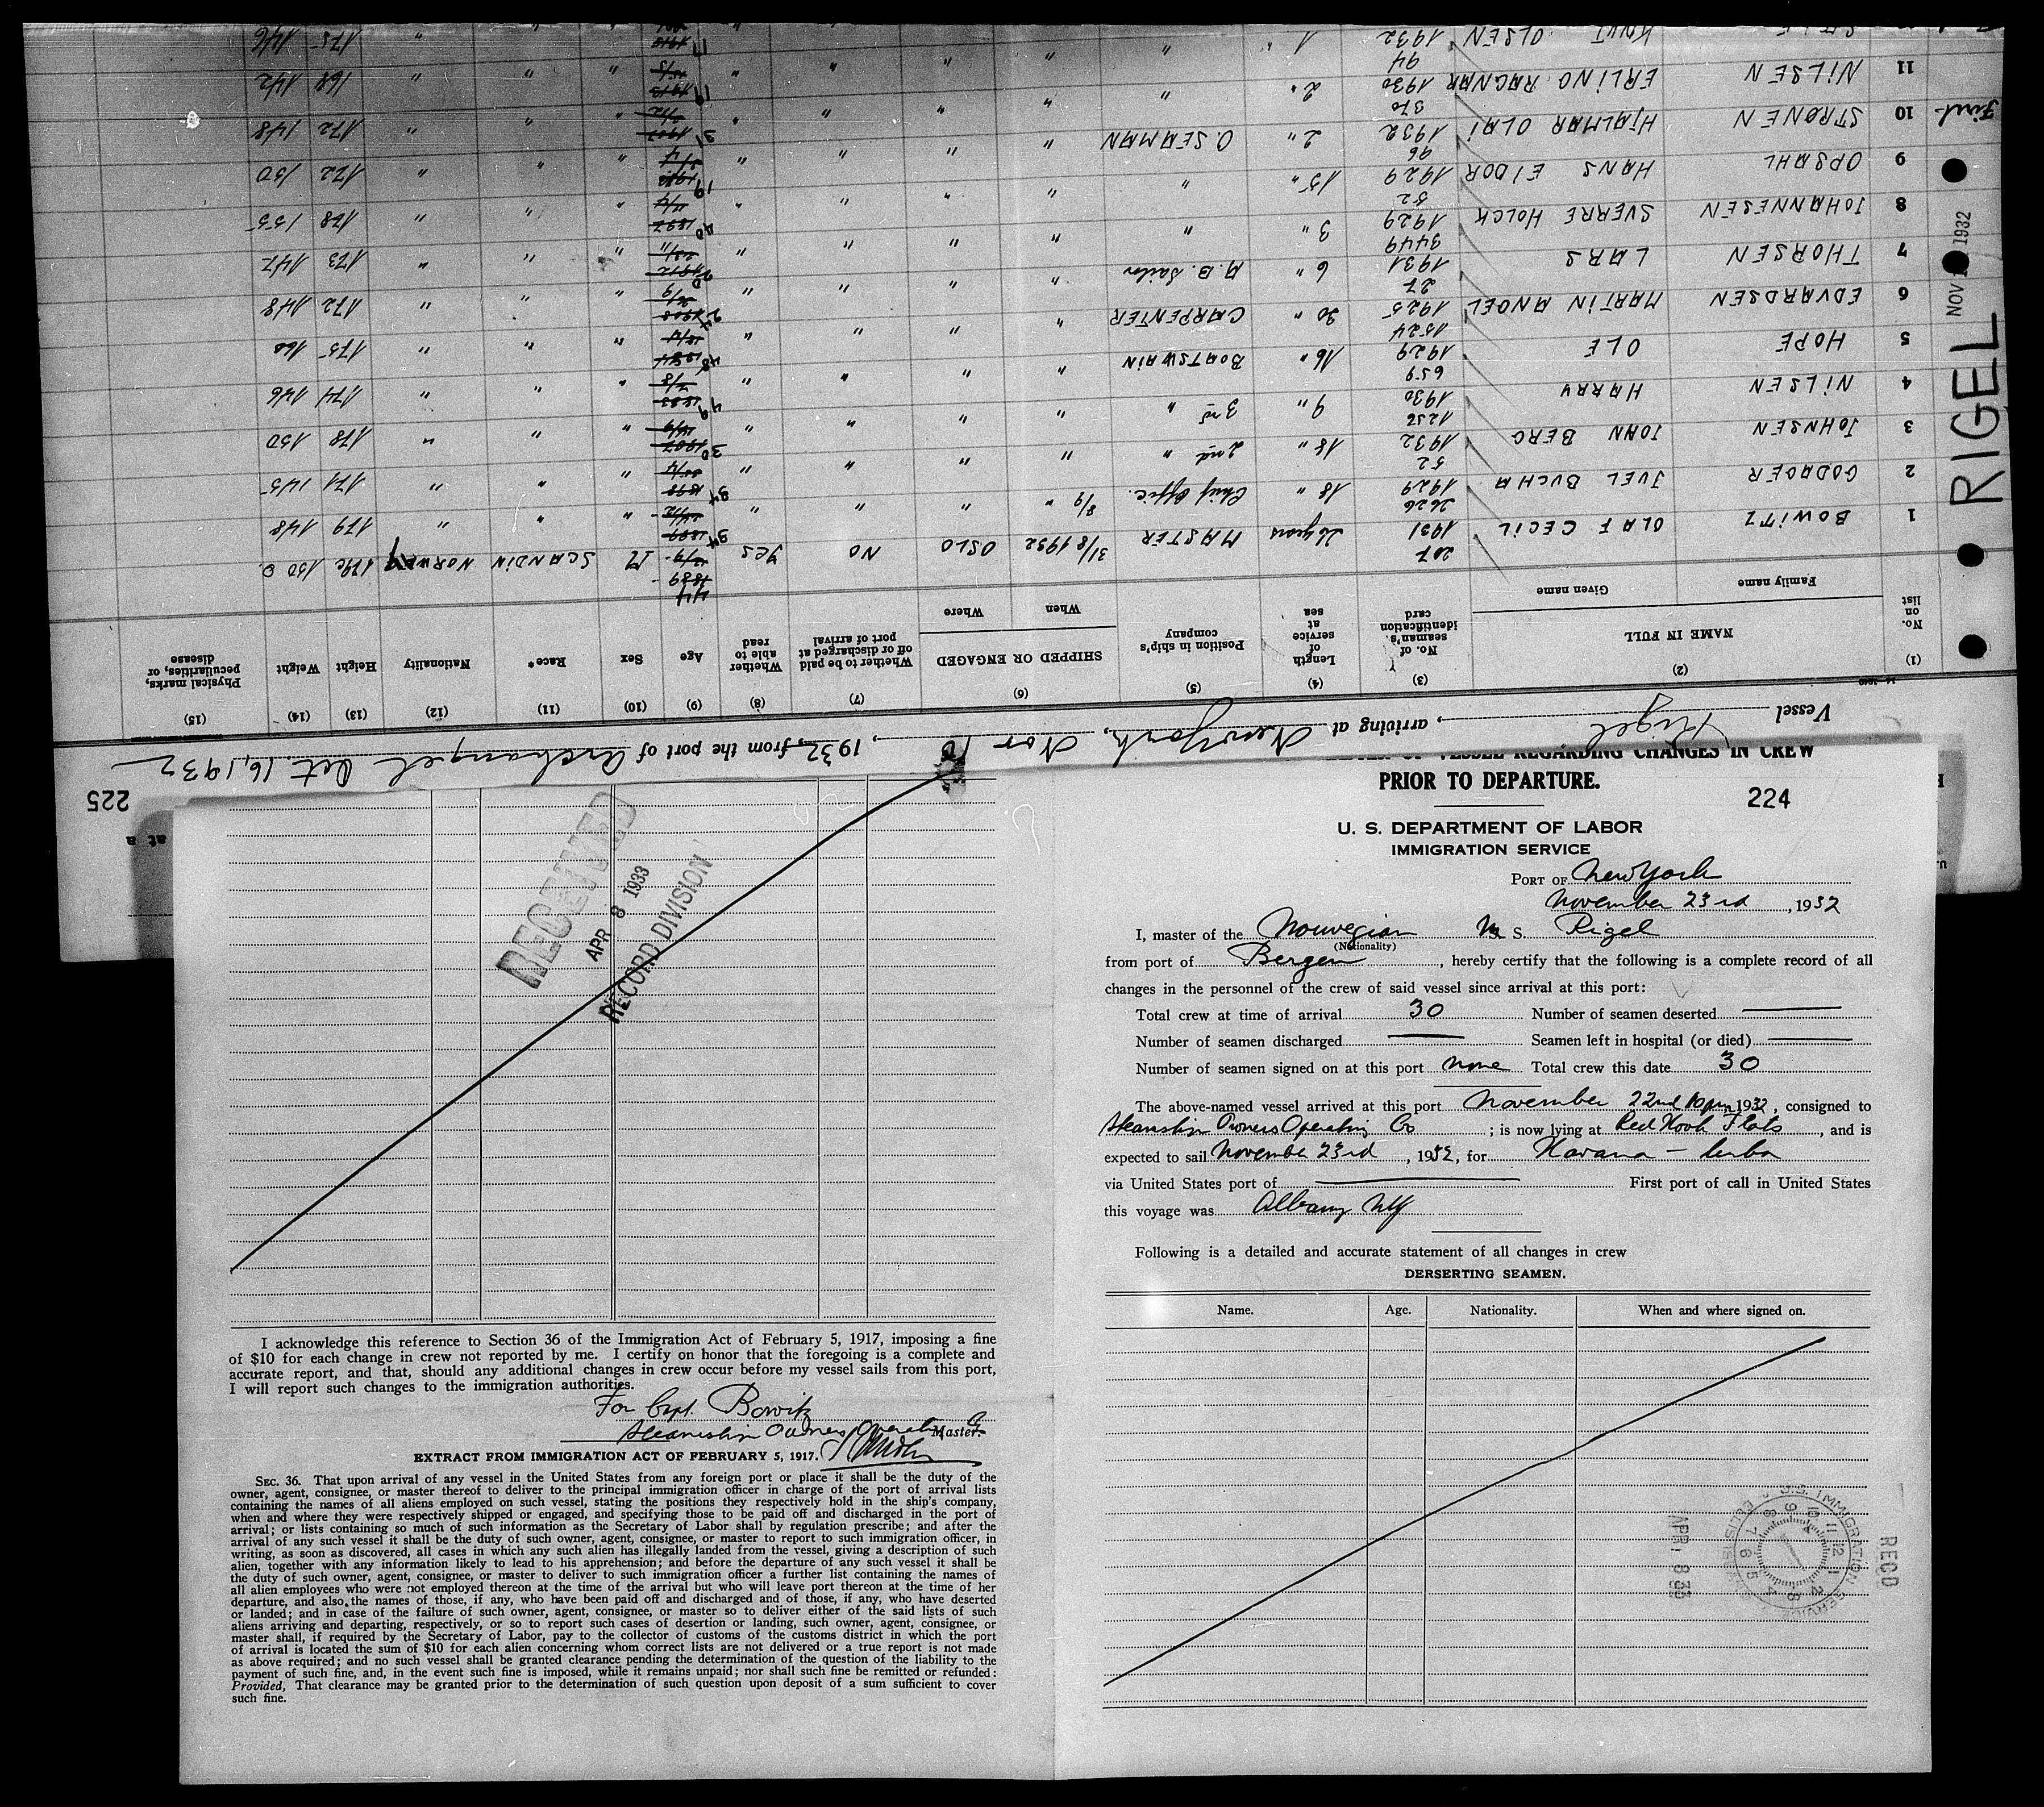 225
Vessel Rigel, arriving at New York, Nov 18, 1932, from the port of Archangel Oct. 16, 1932
(1) (2) (3) (4) (5) (6) (7) (8) (9) (10) (11) (12) (13) (14) (15)
No. on list NAME IN FULL No. of seaman's identification card Length of service at sea Position in ship's company SHIPPED OR ENGAGED Whether to be paid off or discharged at port of arrival Whether able to read Age Sex Race* Nationality Height Weight Physical marks, peculiarities, or disease
Family name Given name When Where
1 BOWITZ OLAF CECIL 1931 207 26 years MASTER 31/8 1932 OSLO NO Yes 44 M SCANDIN NORWAY 179c 150
2 GODAGER JUEL BUCHA 1929 2626 18 " Chief Offic. 8/9 " " " " 34 " " " 179 148
3 JOHNSEN JOHN BERG 1932 52 18 " 2nd " " " " " 34 " " " 171 145
4 NILSEN HARRY 1930 1256 9 " 3rd " " " " " 30 " " " 178 150
5 HOPE OLE 1929 659 16 " BOATSWAIN " " " " 49 " " " 174 146
6 EDVARDSEN MARTIN ANGEL 1925 1524 30 " CARPENTER " " " " 48 " " " 175 160
7 THORSEN LARS 1931 27 6 " A.B. Sailor " " " " 24 " " " 172 148
8 JOHANNESEN SVERRE HOLCK 1929 3449 3 " " " " " " 20 " " " 173 147
9 OPSAHL HANS EIDOR 1929 52 15 " " " " " " 40 " " " 178 155
10 STRØNEN HJALMAR OLAI 1932 96 2 " O. SEAMAN " " " " 19 " " " 172 150
11 NILSEN ERLING RAGNAR 1930 370 2 " " " " " " " " " 172 148
KNUT OLSEN 1932 94 1 " " " " " " 19 " " " 168 142
First
RIGEL
NOV 1932
PRIOR TO DEPARTURE.
224
U. S. DEPARTMENT OF LABOR
IMMIGRATION SERVICE
PORT OF New York
November 23rd, 1932
I, master of the Norwegian M. S. Rigel
(Nationality)
from port of Bergen, hereby certify that the following is a complete record of all
changes in the personnel of the crew of said vessel since arrival at this port:
Total crew at time of arrival 30 Number of seamen deserted
Number of seamen discharged Seamen left in hospital (or died)
Number of seamen signed on at this port none Total crew this date 30
The above-named vessel arrived at this port November 22nd 10 pm 1932, consigned to
Steamship Owners Operating Co; is now lying at Red Hook Flats, and is
expected to sail November 23rd, 1932, for Havana - Cuba
via United States port of First port of call in United States
this voyage was Albany NY
Following is a detailed and accurate statement of all changes in crew
DERSERTING SEAMEN.
Name. Age. Nationality. When and where signed on.
RECD
U.S. IMMIGRATION SERVICE
APR 8 33
RECEIVED
APR 8 1933
RECORD DIVISION
I acknowledge this reference to Section 36 of the Immigration Act of February 5, 1917, imposing a fine
of $10 for each change in crew not reported by me. I certify on honor that the foregoing is a complete and
accurate report, and that, should any additional changes in crew occur before my vessel sails from this port,
I will report such changes to the immigration authorities.
For Capt. Bowitz
Steamship Owners Operating Co Master.
EXTRACT FROM IMMIGRATION ACT OF FEBRUARY 5, 1917.
SEC. 36. That upon arrival of any vessel in the United States from any foreign port or place it shall be the duty of the
owner, agent, consignee, or master thereof to deliver to the principal immigration officer in charge of the port of arrival lists
containing the names of all aliens employed on such vessel, stating the positions they respectively hold in the ship's company,
when and where they were respectively shipped or engaged, and specifying those to be paid off and discharged in the port of
arrival; or lists containing so much of such information as the Secretary of Labor shall by regulation prescribe; and after the
arrival of any such vessel it shall be the duty of such owner, agent, consignee, or master to report to such immigration officer, in
writing, as soon as discovered, all cases in which any such alien has illegally landed from the vessel, giving a description of such
alien, together with any information likely to lead to his apprehension; and before the departure of any such vessel it shall be
the duty of such owner, agent, consignee, or master to deliver to such immigration officer a further list containing the names of
all alien employees who were not employed thereon at the time of the arrival but who will leave port thereon at the time of her
departure, and also the names of those, if any, who have been paid off and discharged and of those, if any, who have deserted
or landed; and in case of the failure of such owner, agent, consignee, or master so to deliver either of the said lists of such
aliens arriving and departing, respectively, or so to report such cases of desertion or landing, such owner, agent, consignee, or
master shall, if required by the Secretary of Labor, pay to the collector of customs of the customs district in which the port
of arrival is located the sum of $10 for each alien concerning whom correct lists are not delivered or a true report is not made
as above required; and no such vessel shall be granted clearance pending the determination of the question of the liability to the
payment of such fine, and, in the event such fine is imposed, while it remains unpaid; nor shall such fine be remitted or refunded:
Provided, That clearance may be granted prior to the determination of such question upon deposit of a sum sufficient to cover
such fine.